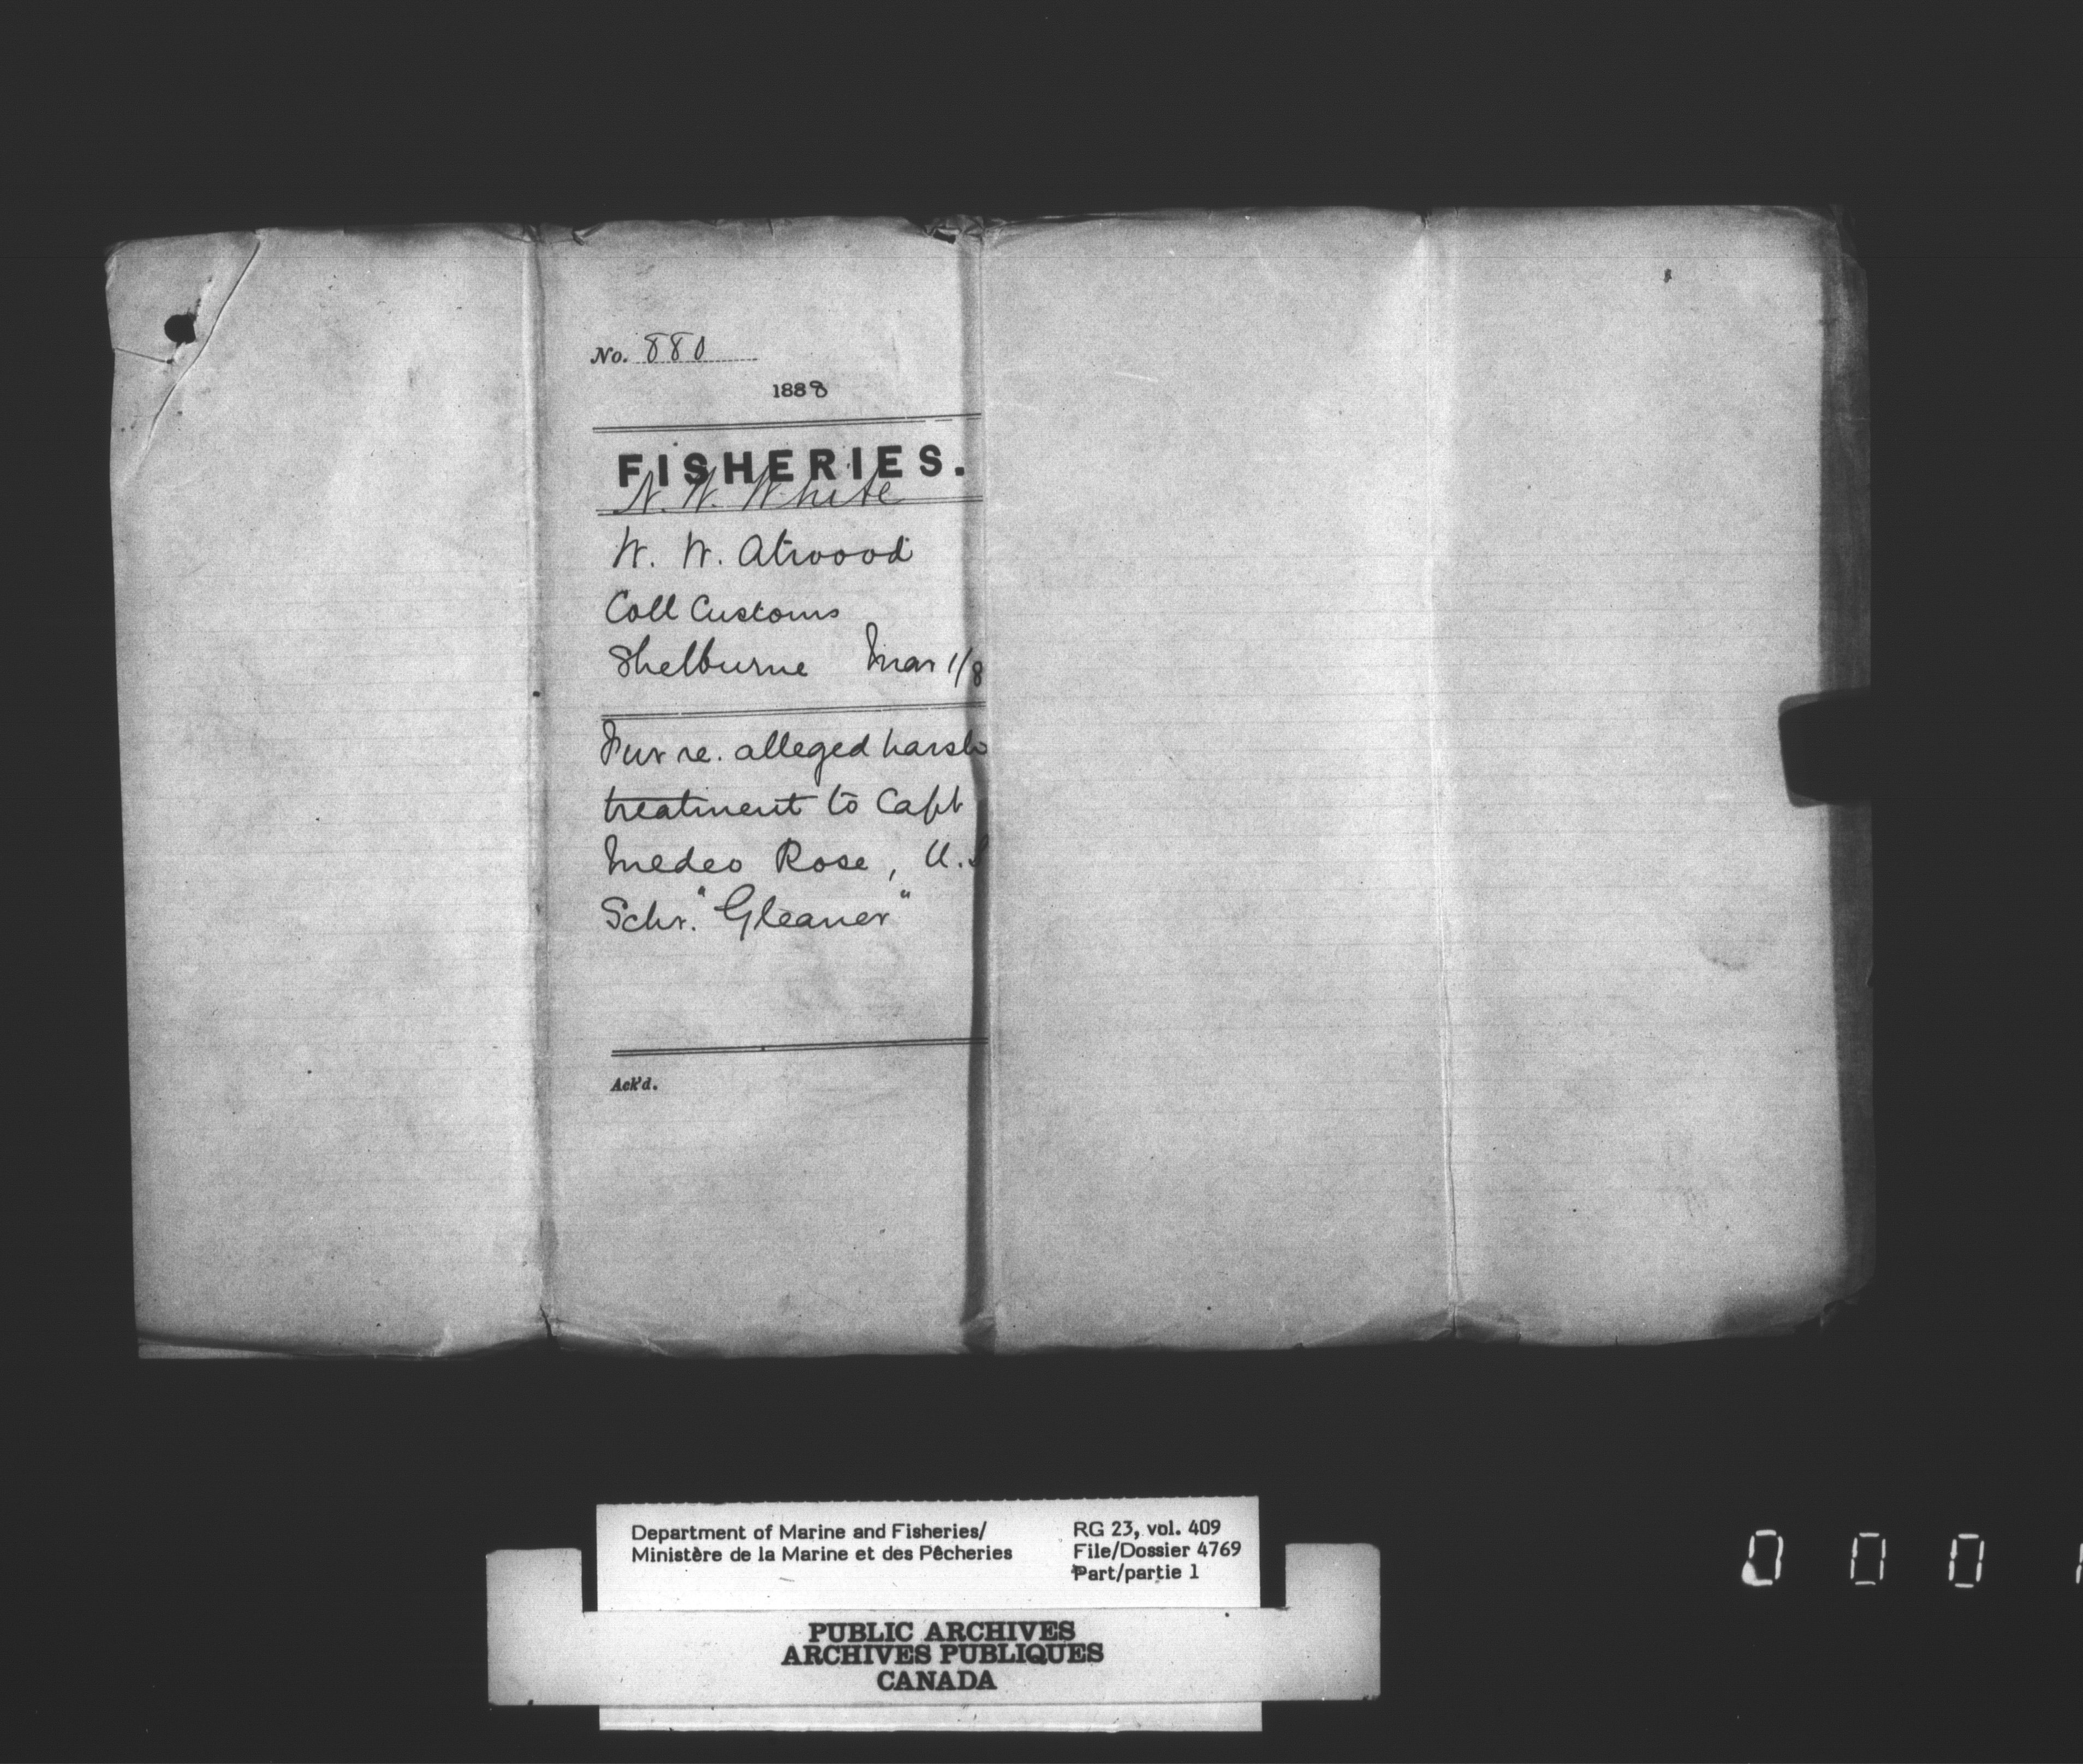 No. 880
1888
FISHERIES.
N. W. White
W. W. Atwood
Coll Customs
Shelburne Mar 1/8
Fur re. alleged harsh
treatment to Capt
Medeo Rose, U.S
Schr. "Gleaner"
Ack'd.
Department of Marine and Fisheries/
Ministère de la Marine et des Pêcheries
RG 23, vol. 409
File/Dossier 4769
Part/partie 1
PUBLIC ARCHIVES
ARCHIVES PUBLIQUES
CANADA
0 0 0